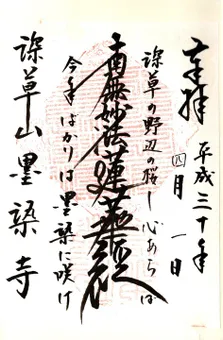 奉拝 平成三十年
四月一日
深草の野辺の桜し心あらば
南無妙法蓮華経
今年ばかりは墨染に咲け
深草山墨染寺